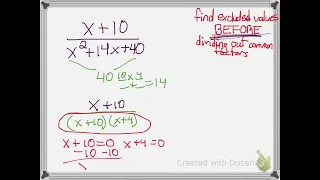 x+10
x²+14x+40
find excluded values
BEFORE
dividing out common
factors
40 10 x 4
+ =14
x+10
(x+10)(x+4)
x+10=0 x+4=0
-10 -10
Created with Doceri